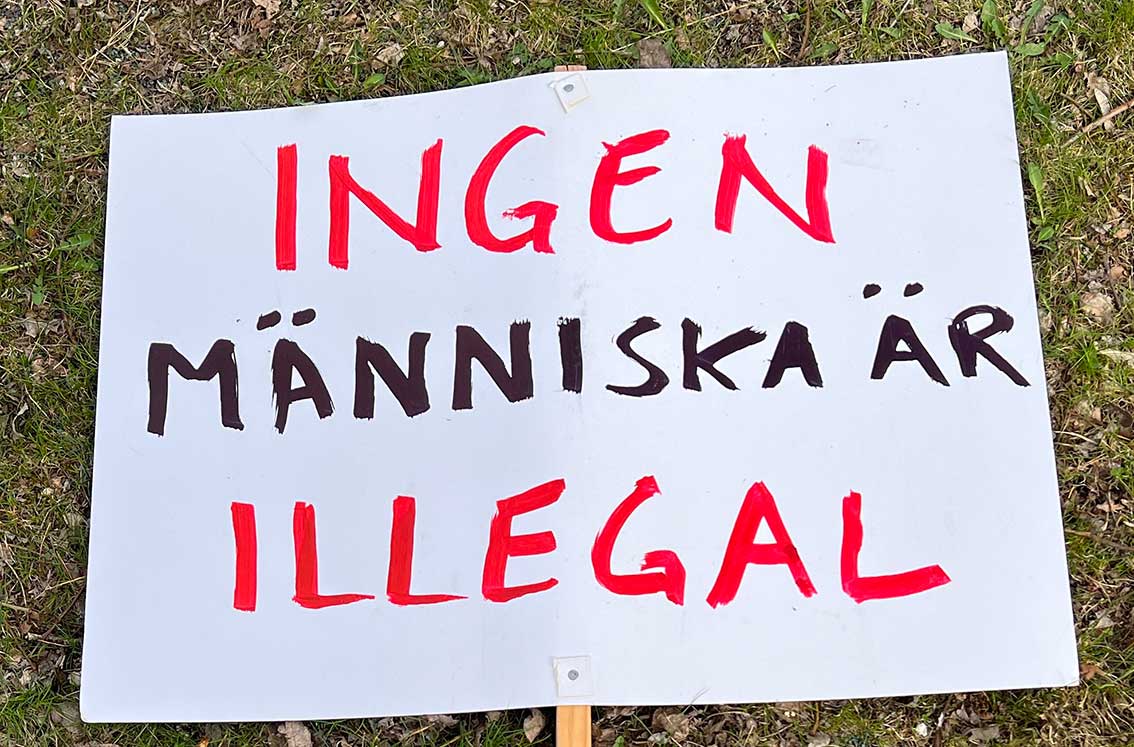 INGEN
MÄNNISKA ÄR
ILLEGAL